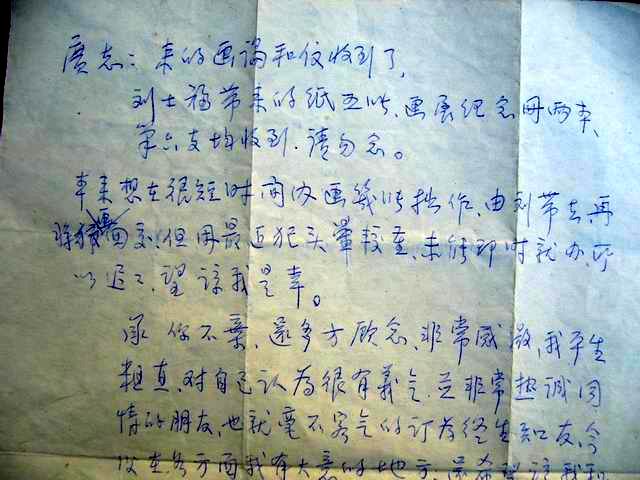 广志：来的画谒和仪收到了，
刘士福带来的纸五此、画展纪念册两本、
笔六支均收到．请勿念。
本来想在很短时间内画几张拙作、由刘带去、再
回刻但因最近犯头晕较重、未能即时就办，所
以迟迟、望谅我是幸。
承你不弃、还多方顾念、非常感激、我平生
粗直、对自己认为很有义气、并非常热诚同
情的朋友、也就毫不客气的订为终生知友、今
以在各方面我有大意的地方、还希望谅我和